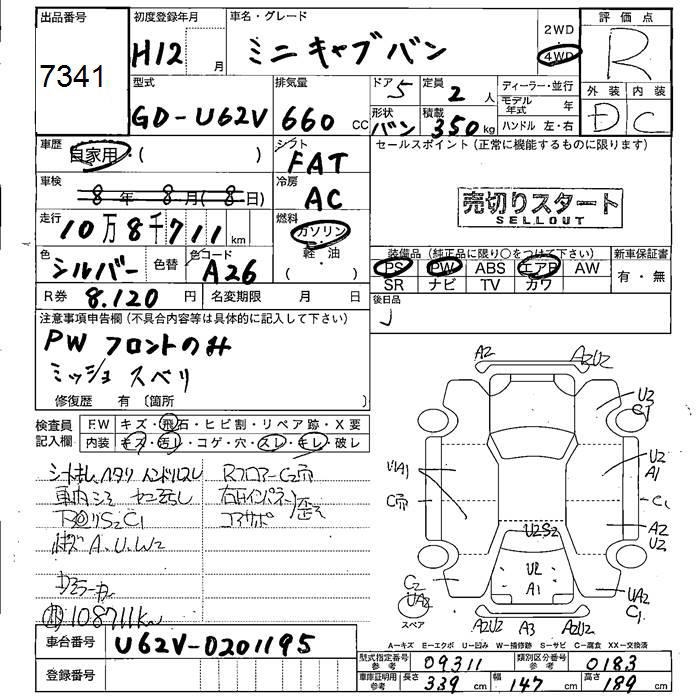 出品番号
7341
初度登録年月
H12 月
車名・グレード
ミニキャブバン
2WD
4WD
評価点
R
外装 内装
D C
型式
GD-U62V
排気量
660 cc
ドア 5
定員 2 人
形状 バン
積載 350 kg
ディーラー・並行
モデル年式 年
ハンドル 左・右
車歴
自家用・( )
シフト
FAT
車検
8年 8月(8日)
冷房
AC
走行
10万8千711 km
燃料
ガソリン
軽・油
( )
色
シルバー
色替
色コード
A26
R券 8.120 円
名変期限 月 日
セールスポイント(正常に機能するものに限ります)
売切りスタート
SELLOUT
装備品(純正品に限り○をつけて下さい)
PS PW ABS エアB AW
SR ナビ TV カワ
新車保証書
有・無
後日品
注意事項申告欄(不具合内容等は具体的に記入して下さい)
PW フロントのみ
ミッション スベリ
修復歴 有〔箇所 〕
検査員記入欄
F.W キズ・飛石・ヒビ割・リペア跡・X要
内装 キズ・汚レ・コゲ・穴・スレ・キレ・破レ
車内シミ
A.U.W2
108711km
RフロアーC2穴
右Hインパネ
コアサポ
歪ミ
A2
A2U2
U2
C1
U2
A1
C1
A2
U2
UA2
C1
UA1
C穴
U2S2
U2
A1
C2
UA2
スペア
A2U2
A3
A2U2
A-キズ E-エクボ U-凹み W-補修跡 S-サビ C-腐食 XX-交換済
車台番号
U62V-0201195
登録番号
型式指定番号 参考 09311
類別区分番号 参考 0183
車庫証明用 参考
長さ 339 cm
幅 147 cm
高さ 189 cm